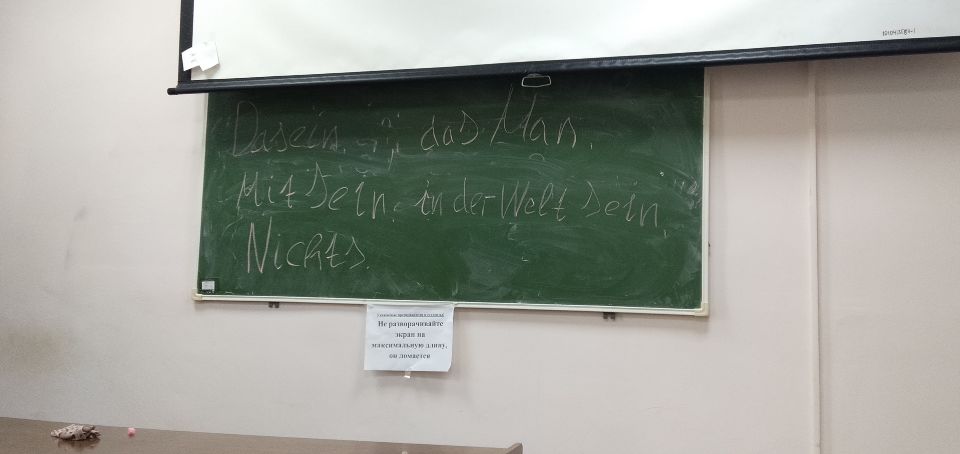 Dasein. das Man.
Mit Sein. in der-Welt Sein,
Nichts.
Не разворачивайте
экран на
максимальную длину,
он ломается